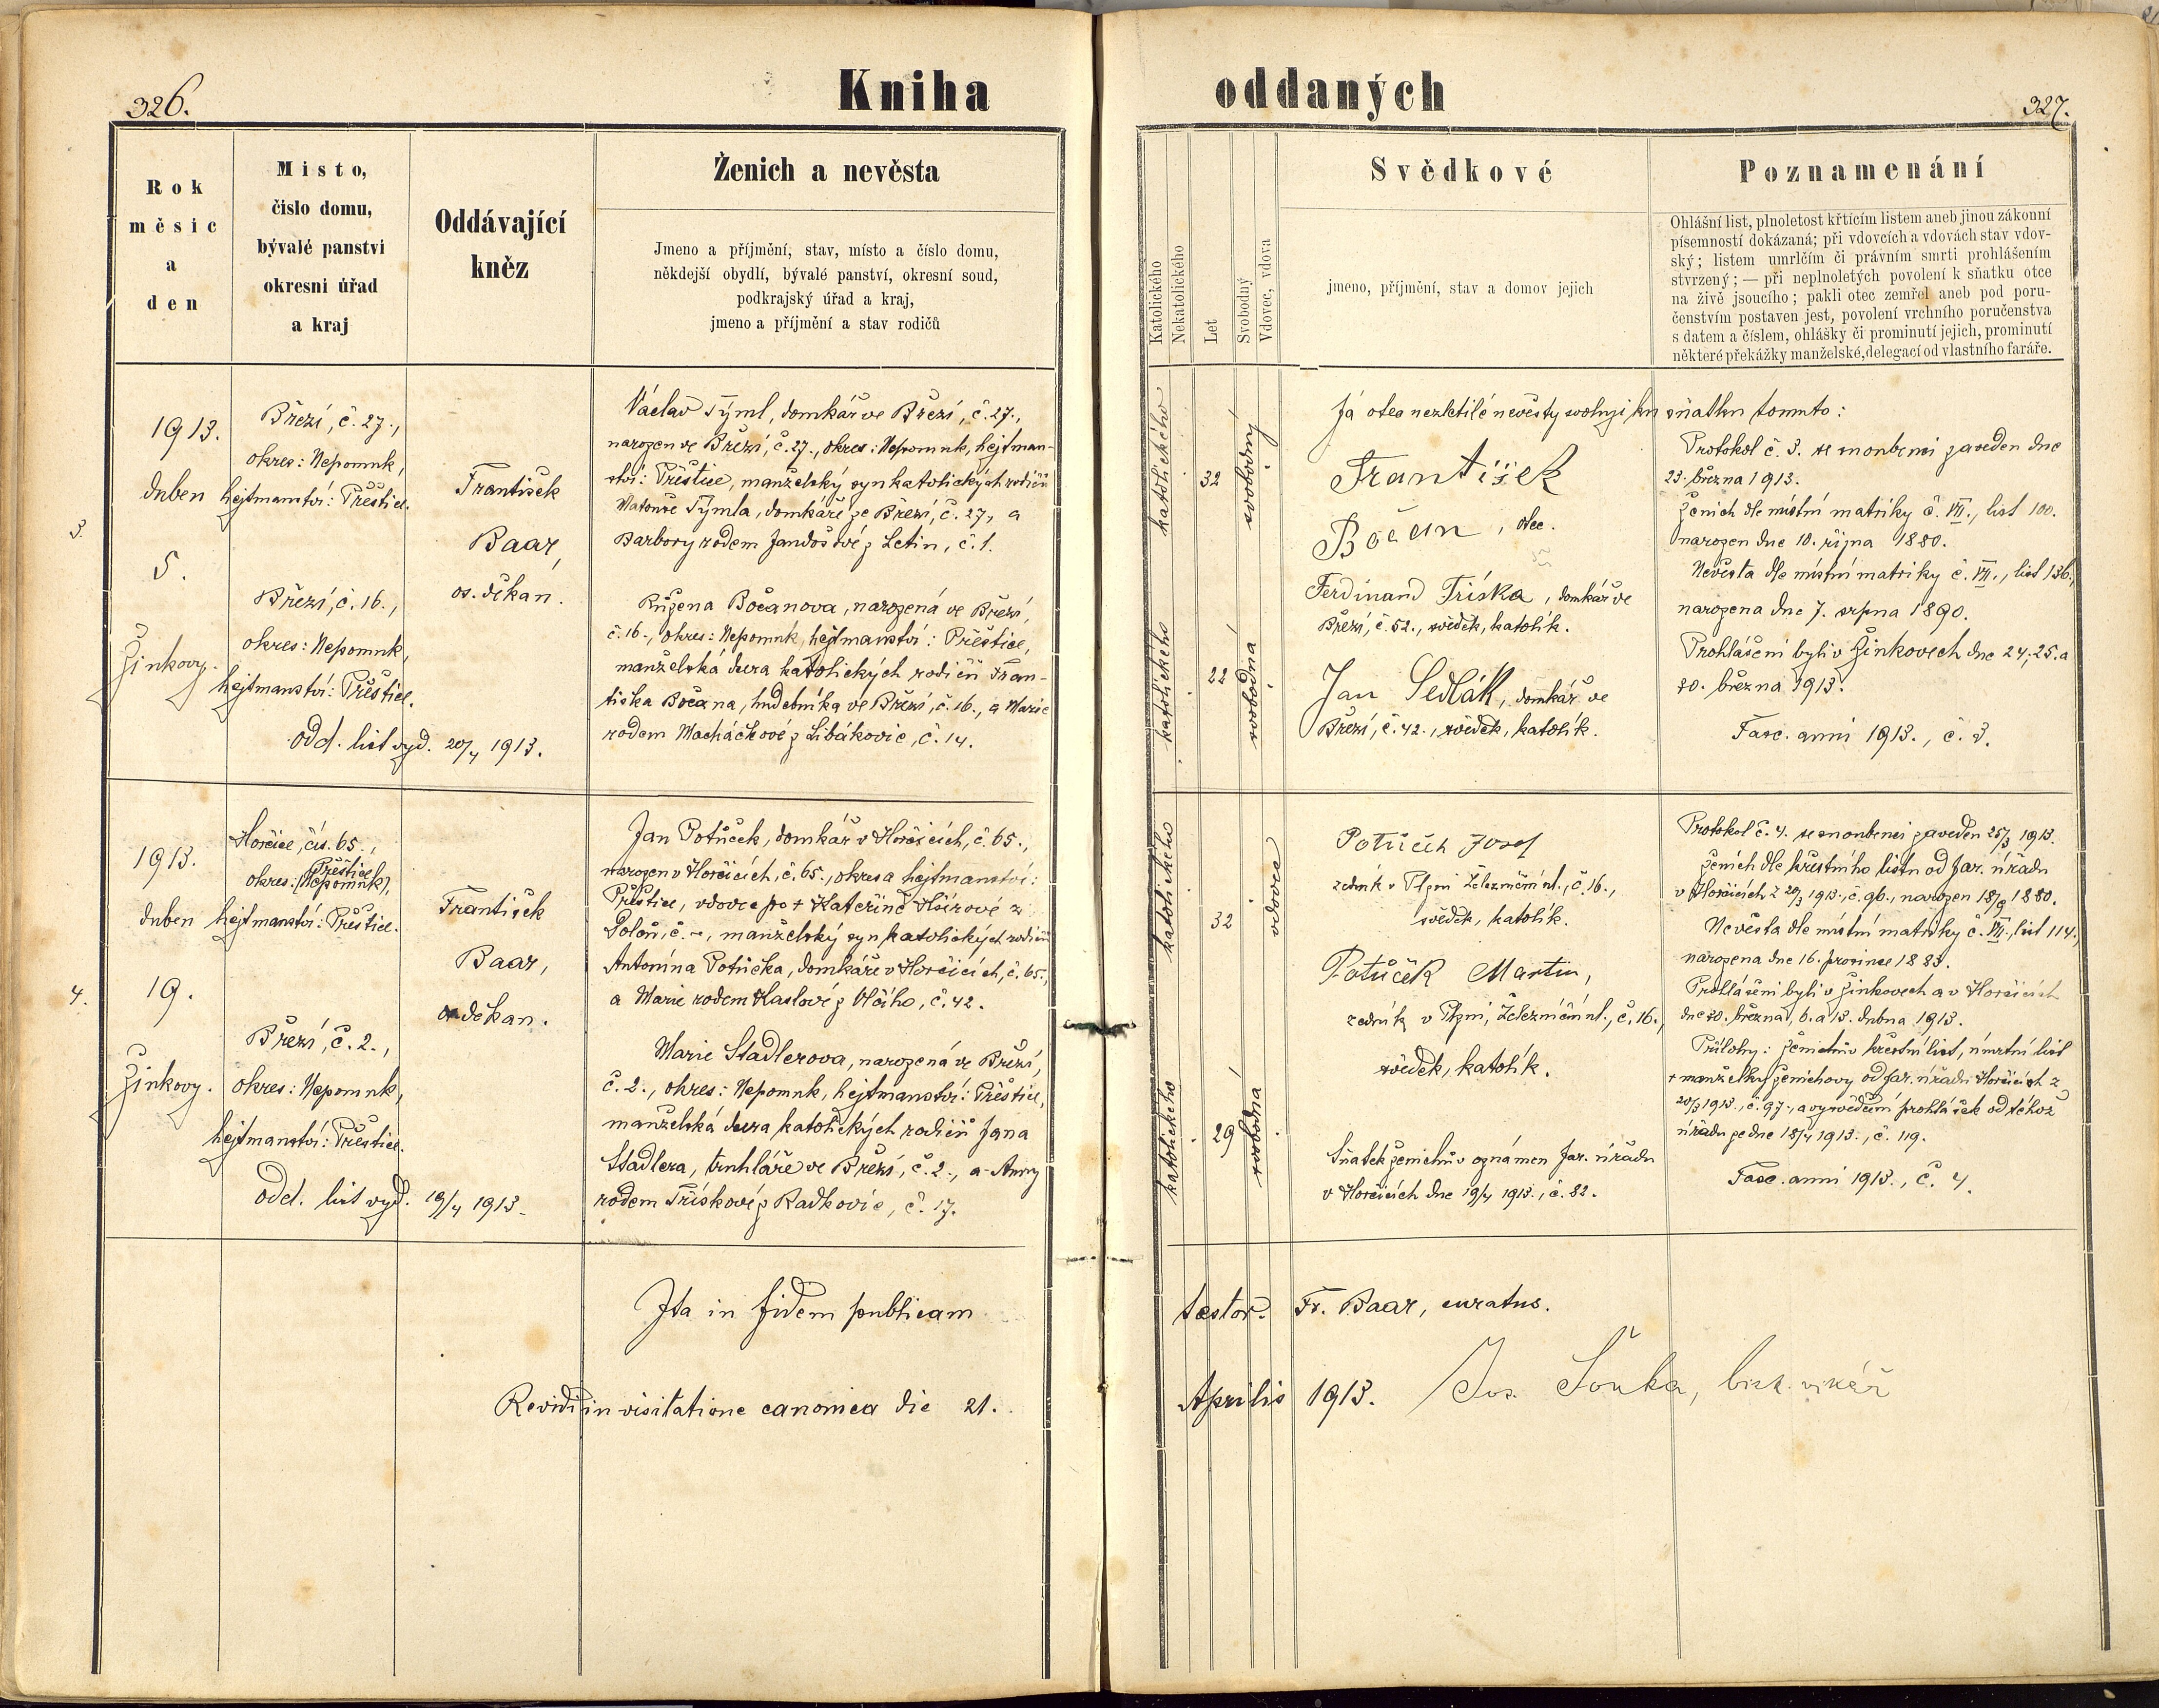 326.
Kniha
oddaných
327.
Rok
měsic
a
den
Misto,
čislo domu,
bývalé panstvi
okresni úřad
a kraj
Oddávající
kněz
Ženich a nevěsta
Jmeno a příjmění, stav, místo a číslo domu,
někdejší obydlí, bývalé panství, okresní soud,
podkrajský úřad a kraj,
jmeno a příjmění a stav rodičů
Katolického
Nekatolického
Let
Svobodný
Vdovec, vdova
Svědkové
jmeno, příjmění, stav a domov jejich
Poznamenání
Ohlášní list, plnoletost křtícím listem aneb jinou zákonní
písemností dokázaná; při vdovcích a vdovách stav vdov-
ský; listem umrlčím či právním smrti prohlášením
stvrzený; — při neplnoletých povolení k sňatku otce
na živě jsoucího; pakli otec zemřel aneb pod poru-
čenstvím postaven jest, povolení vrchního poručenstva
s datem a číslem, ohlášky či prominutí jejich, prominutí
některé překážky manželské, delegací od vlastního faráře.
3.
1913.
duben
5.
Žinkovy.
Březí, č. 27.,
okres: Nepomuk,
hejtmanství: Přeštice.
Březí, č. 16.,
okres: Nepomuk,
hejtmanství: Přeštice.
odd. list vyd. 20/4 1913.
František
Baar,
os. děkan.
Václav Týml, domkář ve Březí, č. 27.,
narozen ve Březí, č. 27., okres: Nepomuk, hejtman-
ství: Přeštice, manželský syn katolických rodičů
Matouše Týmla, domkáře ze Březí, č. 27., a
Barbory rodem Jandošové z Letin, č. 1.
Růžena Bočanova, narozená ve Březí,
č. 16., okres: Nepomuk, hejtmanství: Přeštice,
manželská dcera katolických rodičů Fran-
tiška Bočana, hudebníka ve Březí, č. 16., a Marie
rodem Macháčkové z Libákovic, č. 14.
katolického
32
svobodný
katolického
22
svobodná
Já otec nezletilé nevěsty svoluji ku sňatku tomuto:
František
Bočan, otec.
Ferdinand Tříska, domkář ve
Březí, č. 52., svědek, katolík.
Jan Sedlák, domkář ve
Březí, č. 42., svědek, katolík.
Protokol č. 3. se snoubenci zaveden dne
23. března 1913.
Ženich dle místní matriky č. VII., list 100.
narozen dne 10. října 1880.
Nevěsta dle místní matriky č. VII., list 136.,
narozena dne 7. srpna 1890.
Prohlášeni byli v Žinkovech dne 24., 25. a
30. března 1913.
Fasc. anni 1913., č. 3.
4.
1913.
duben
19.
Žinkovy.
Horčice, čís. 65.,
Přeštice
okres: (Nepomuk),
hejtmanství: Přeštice.
Březí, č. 2.,
okres: Nepomuk,
hejtmanství: Přeštice.
odd. list vyd. 19/4 1913.
František
Baar,
os. děkan.
Jan Potůček, domkář v Horčicích, č. 65.,
narozen v Horčicích, č. 65., okres a hejtmanství:
Přeštice, vdovec po + Kateřině
č. –, manželský syn katolických rodičů
Antonína Potůčka, domkáře v Horčicích, č. 65.,
a Marie rodem Kaslové z Vlčího, č. 42.
Marie Stadlerova, narozená ve Březí,
č. 2., okres: Nepomuk, hejtmanství: Přeštice,
manželská dcera katolických rodičů Jana
Stadlera, truhláře ve Březí, č. 2., a Anny
rodem Třískové z Radkovic, č. 17.
katolického
32
vdovec
katolického
29
svobodná
Potůček Josef
zedník v Plzni Železniční ul., č. 16.,
svědek, katolík.
Potůček Martin,
zedník v Plzni, Železniční ul., č. 16.,
svědek, katolík.
Sňatek ženichův oznámen far. úřadu
v Horčicích dne 19/4 1913., č. 82.
Protokol č. 4. se snoubenci zaveden 25/3 1913.
Ženich dle křestního listu od far. úřadu
v Horčicích z 20/3 1913., č. 96., narozen 18/9 1880.
Nevěsta dle místní matriky č. VII., list 114.,
narozena dne 16. prosince 1883.
Prohlášeni byli v Žinkovech a v Horčicích
dne 30. března, 6. a 13. dubna 1913.
Přílohy: Ženichův křestní list, úmrtní list
+ manželky ženichovy od far. úřadu Horčicích z
20/3 1913., č. 97., a vysvědčení prohlášek od téhož
úřadu ze dne 18/4 1913., č. 119.
Fasc. anni 1913., č. 4.
Ita in fidem publicam testor. Fr. Baar, curatus.
Revidi in visitatione canonica die 21. Aprilis 1913. Jos. Šonka, bisk. vikář